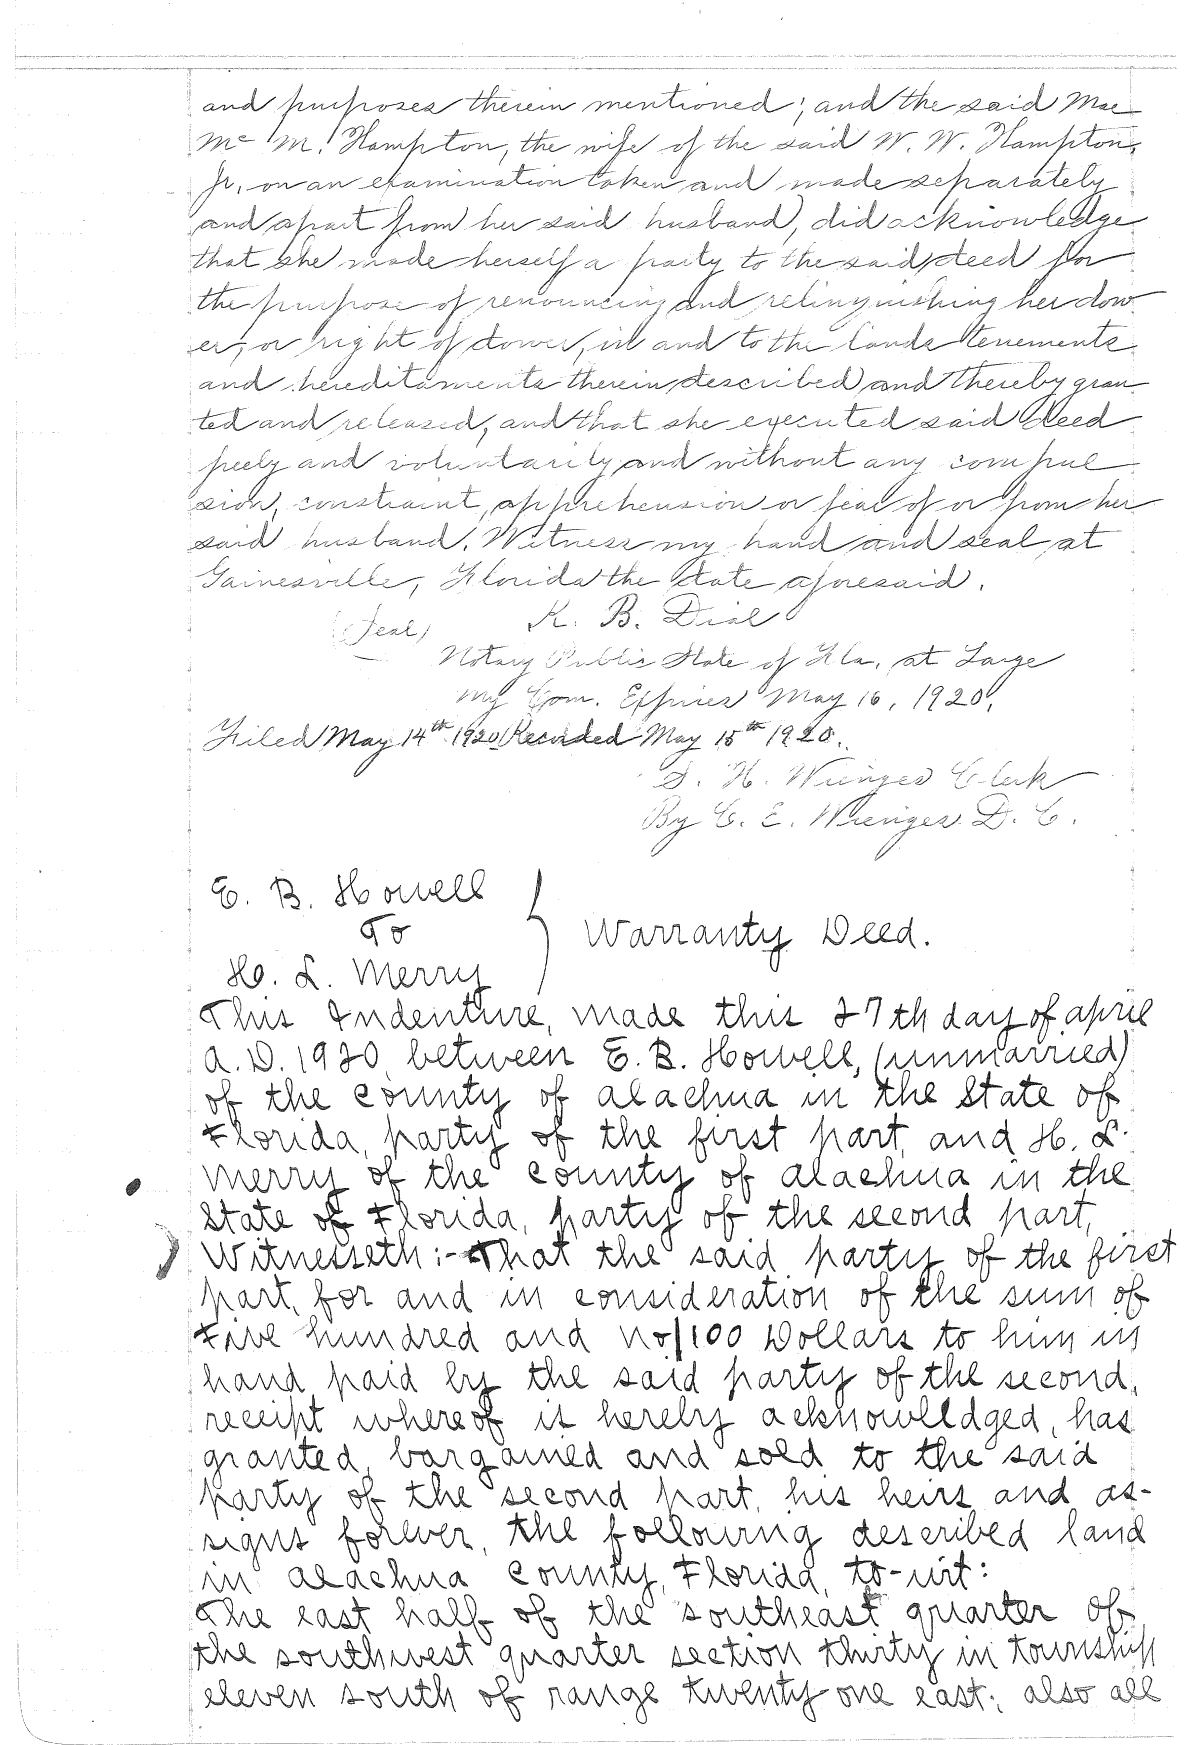 and purposes therein mentioned; and the said Mae
Mc M. Hampton, the wife of the said W. W. Hampton,
Jr, on an examination taken and made separately
and apart from her said husband, did acknowledge
that she made herself a party to the said deed for
the purpose of renouncing and relinquishing her dow
er, or right of dower, in and to the lands tenements
and hereditaments therein described and thereby gran
ted and released, and that she executed said deed
freely and voluntarily and without any compul
sion, constraint, apprehension or fear of or from her
said husband. Witness my hand and seal at
Gainesville, Florida the date aforesaid.
(Seal) K. B. Dial
Notary Public State of Fla, at Large
My Com. Expires May 16, 1920.
Filed May 14th 1920 Recorded May 15th 1920.
S. H. Wienges Clerk
By C. E. Wienges D. C.
E. B. Howell
To
Warranty Deed.
H. L. Merry
This Indenture, made this 27th day of april
A. D. 1920, between E. B. Howell, (unmarried)
of the county of alachua in the State of
Florida, party of the first part, and H. L.
Merry of the county of alachua in the
State of Florida, party of the second part,
Witnesseth:- That the said party of the first
part, for and in consideration of the sum of
Five hundred and no/100 Dollars to him in
hand paid by the said party of the second,
receipt whereof is hereby acknowlldged, has
granted, bargained and sold to the said
party of the second part, his heirs and as-
signs forever, the following described land
in alachua county, Florida, to-wit:
The east half of the southeast quarter of
the southwest quarter section thirty in township
eleven south of range twenty one east; also all